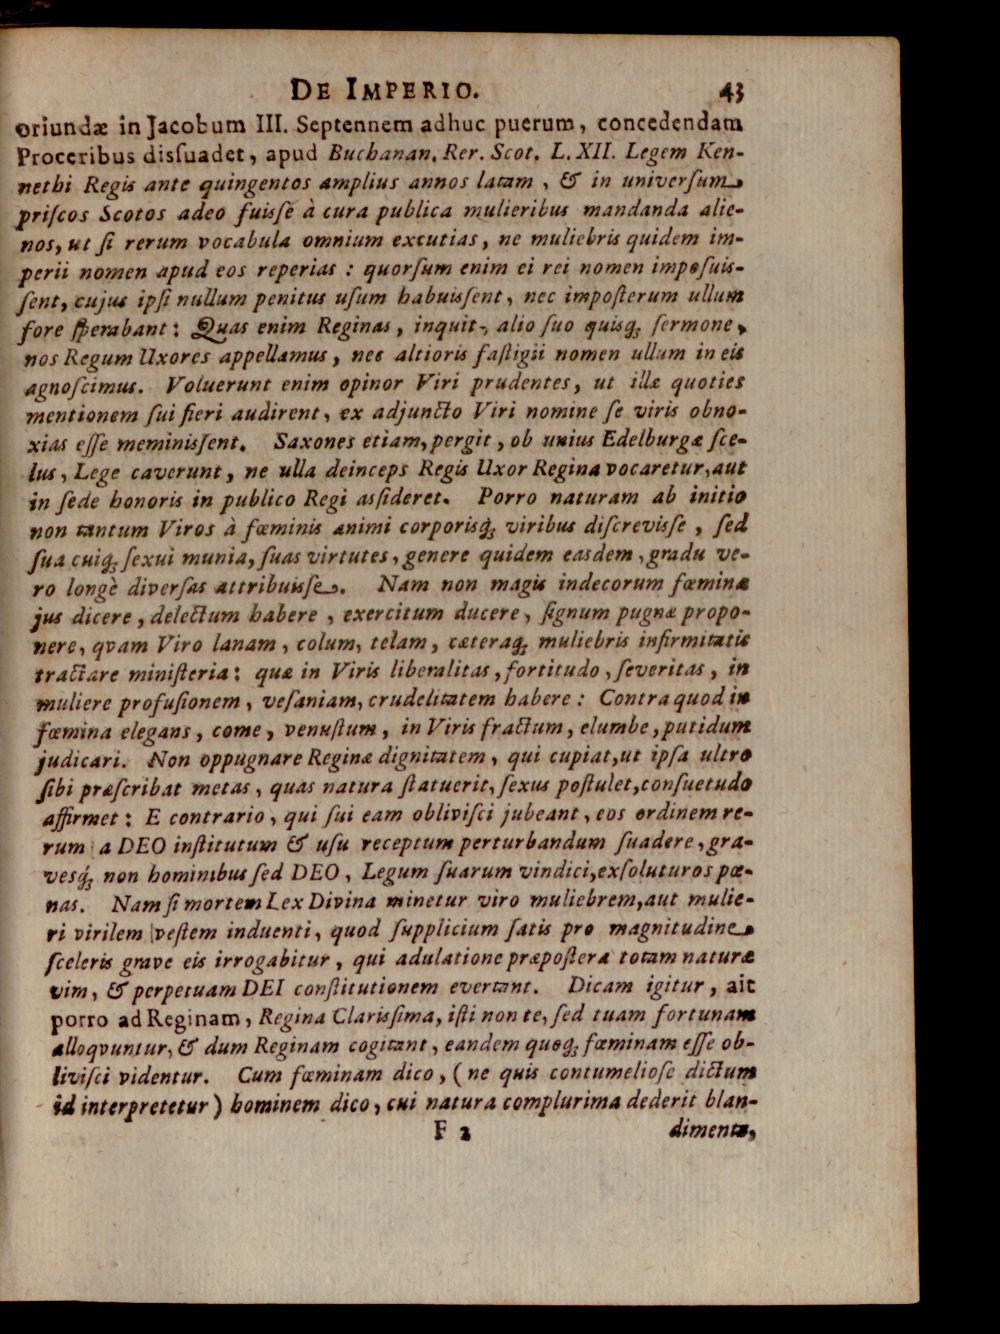 DE IMPERIO. 43
oriundæ in Jacobum III. Septennem adhuc puerum, concedendam
Proceribus dissuadet, apud Buchanan. Rer. Scot. L. XII. Legem Ken-
nethi Regis ante quingentos amplius annos latam, & in universum
priſcos Scotos adeo fuisſe à cura publica mulieribus mandanda alie-
nos, ut ſi rerum vocabula omnium excutias, ne muliebris quidem im-
perii nomen apud eos reperias : quorſum enim ei rei nomen impoſuis-
ſent, cujus ipſi nullum penitus uſum habuisſent, nec impoſterum ullum
fore ſperabant : Quas enim Reginas, inquit, alio ſuo quisq; ſermone,
nos Regum Uxores appellamus, nec altioris faſtigii nomen ullum in eis
agnoſcimus. Voluerunt enim opinor Viri prudentes, ut illæ quoties
mentionem ſui fieri audirent, ex adjuncto Viri nomine ſe viris obno-
xias eſſe meminisſent. Saxones etiam, pergit, ob unius Edelburgæ ſce-
lus, Lege caverunt, ne ulla deinceps Regis Uxor Regina vocaretur, aut
in ſede honoris in publico Regi asſideret. Porro naturam ab initio
non tantum Viros à fœminis animi corporisq́; viribus diſcrevisſe, ſed
ſua cuiq; ſexui munia, ſuas virtutes, genere quidem easdem, gradu ve-
ro longè diverſas attribuisſe. Nam non magis indecorum fœminæ
jus dicere, delectum habere, exercitum ducere, ſignum pugnæ propo-
nere, qvam Viro lanam, colum, telam, cæteraq; muliebris infirmitatis
tractare miniſteria: quæ in Viris liberalitas, fortitudo, ſeveritas, in
muliere profuſionem, veſaniam, crudelitatem habere : Contra quod in
fœmina elegans, come, venuſtum, in Viris fractum, elumbe, putidum
judicari. Non oppugnare Reginæ dignitatem, qui cupiat, ut ipſa ultro
ſibi præſcribat metas, quas natura ſtatuerit, ſexus poſtulet, conſuetudo
affirmet : E contrario, qui ſui eam obliviſci jubeant, eos ordinem re-
rum a DEO inſtitutum & uſu receptum perturbandum ſuadere, gra-
vesq́; non hominibus ſed DEO, Legum ſuarum vindici, exſoluturos pœ-
nas. Nam ſi mortem Lex Divina minetur viro muliebrem, aut mulie-
ri virilem veſtem induenti, quod ſupplicium ſatis pro magnitudine
ſceleris grave eis irrogabitur, qui adulatione præpoſtera totam naturæ
vim, & perpetuam DEI conſtitutionem evertant. Dicam igitur, ait
porro ad Reginam, Regina Clarisſima, iſti non te, ſed tuam fortunam
alloqvuntur, & dum Reginam cogitant, eandem quoq; fœminam eſſe ob-
liviſci videntur. Cum fœminam dico, (ne quis contumelioſe dictum
id interpretetur) hominem dico, cui natura complurima dederit blan-
F 2 dimenta,